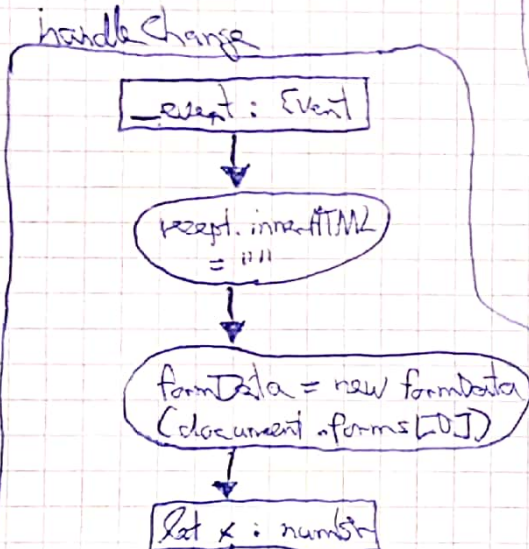 handleChange
_event : Event
rezept.innerHTML
= ""
formData = new formData
(document.forms[0])
let x : number